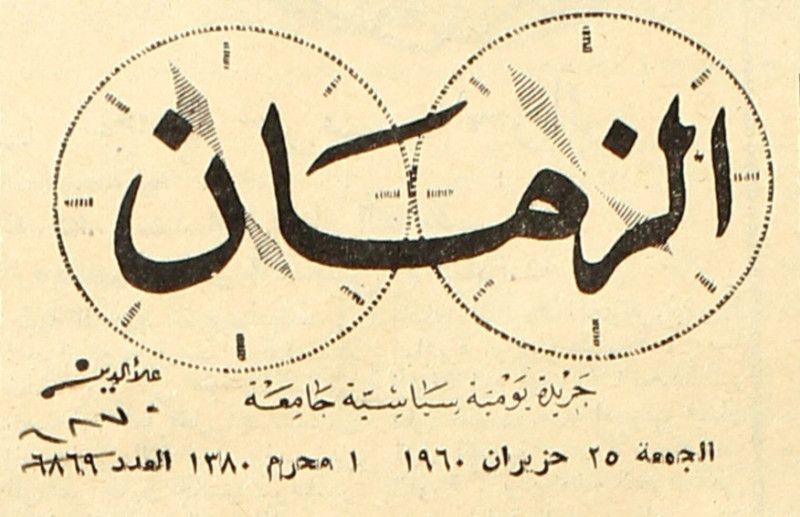 الزمان
جريدة يومية سياسية جامعة
علاءالدين
الجمعة ٢٥ حزيران ١٩٦٠ ١ محرم ١٣٨٠ العدد ٦٨٦٩